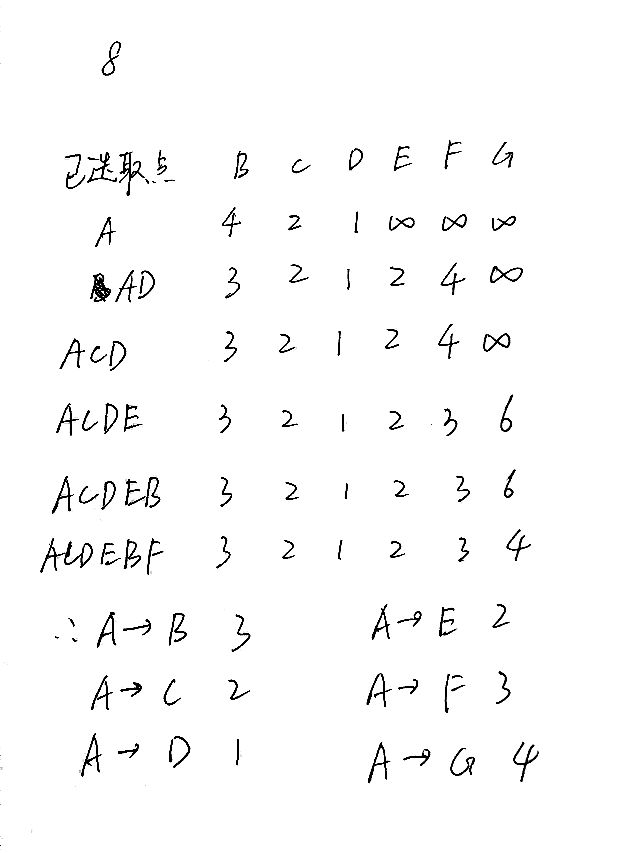 8
已选取点 B C D E F G
A 4 2 1 ∞ ∞ ∞
AD 3 2 1 2 4 ∞
ACD 3 2 1 2 4 ∞
ACDE 3 2 1 2 3 6
ACDEB 3 2 1 2 3 6
ACDEBF 3 2 1 2 3 4
∴ A→B 3 A→E 2
A→C 2 A→F 3
A→D 1 A→G 4